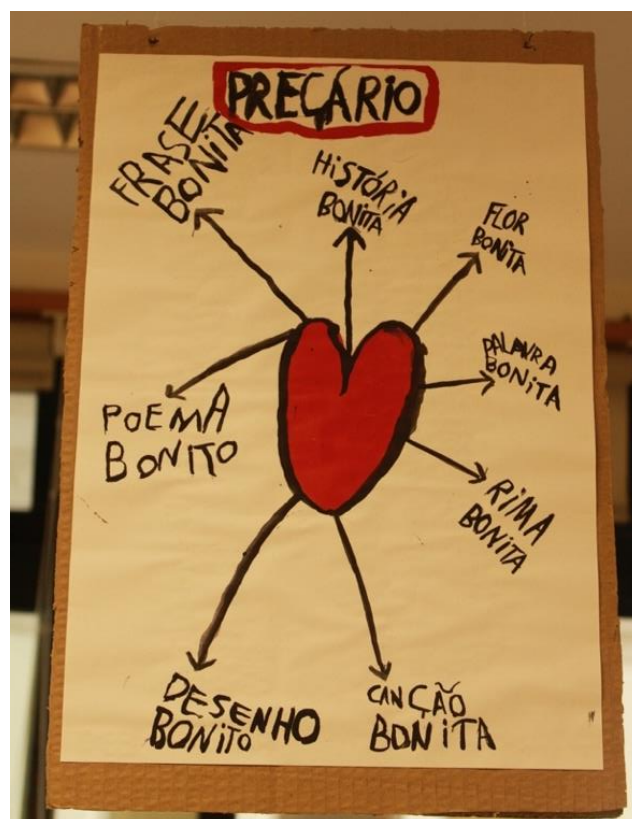 PREÇÁRIO
FRASE
BONITA
HISTÓRIA
BONITA
FLOR
BONITA
PALAVRA
BONITA
RIMA
BONITA
CANÇÃO
BONITA
DESENHO
BONITO
POEMA
BONITO